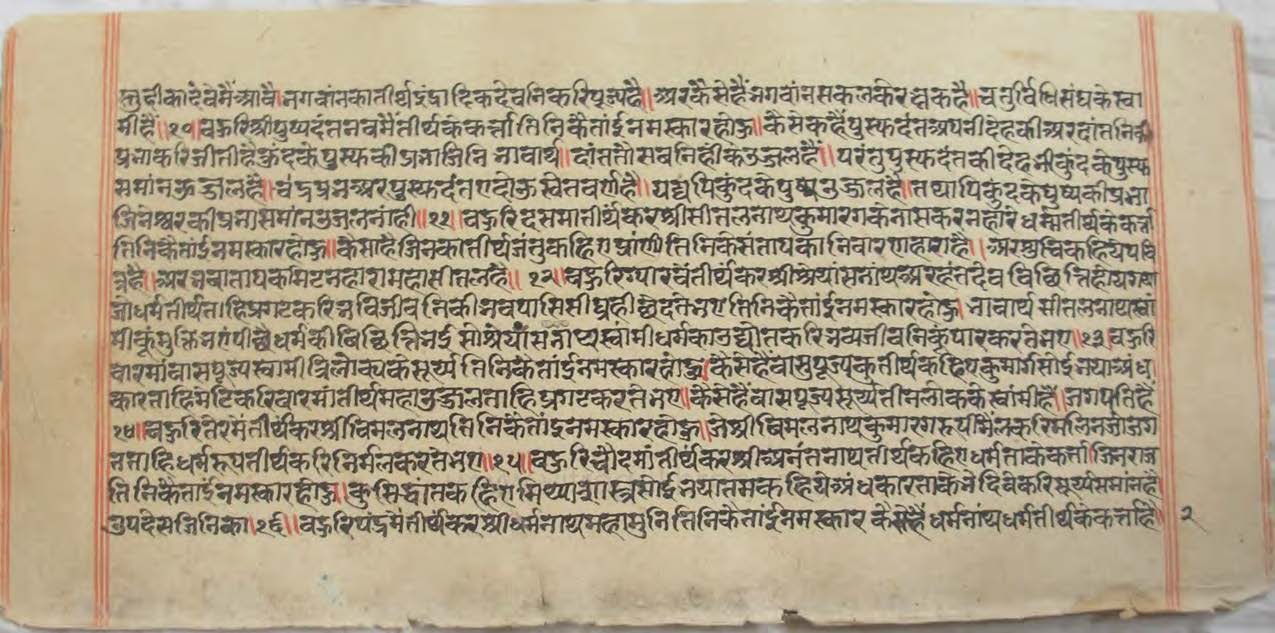 स्तुदीकादेवेमैंआवै।भगवांनकातीर्थइंद्रादिकदेवनिकरिपूज्यहै॥अरकैसेहैंभगवांनसकलकेरक्षकहै॥चतुर्विधिसंघकेस्वा
मीहैं॥१०॥बहुरिश्रीपुष्पदंतनवमैंतीर्थकेकर्त्तातिनिकैतांईनमस्कारहोहु॥कैसेकहैपुस्फदंतअपनीदेहकीअरदांतनिकी
प्रभाकरिजीतीहैकुंदकेपुस्फकीप्रभाजिनिभावार्थ॥दांततौसबनिहीकेउज्जलहैं॥परंतुपुस्फदंतकीदेहभीकुंदकेपुस्फ
समांनउज्जलहै॥चंद्रप्रभअरपुस्फदंतएदोऊस्वेतवर्णहै॥यद्यपिकुंदकेपुष्पउज्जलहै॥तथापिकुंदकेपुष्पकीप्रभा
जिनेश्वरकीप्रभासमांनउज्जलनांही॥११॥बहुरिदसमातीर्थंकरश्रीसीतलनाथकुमारगकेनासकरनहारेधर्म्मतीर्थकेकर्त्ता
तिनिकैतांईनमस्कारहोहु॥कैसाहैजिनकातीर्थजंतुकहिएप्रांणीतिनिकेसंतापकानिवारणहाराहै॥अरशुचिकहियेपवि
त्रहै॥अरभवातापकामिटनहारामहासीतलहै॥१२॥बहुरिग्यारवेंतीर्थंकरश्रीश्रेयांसनाथअरहंतदेवविछित्तिहोयगया
जोधर्मतीर्थताहिप्रगटकरिभविजीवनिकीभवपासिसीघ्रहीछेदतेभएतिनिकैतांईनमस्कारहोहु।भावार्थसीतलनाथस्वां
मीकूंमुक्तिभएपीछैधर्मकीविछित्तिभईसोश्रेयांसनाथस्वांमीधर्मकाउद्योतकरिभव्यजीवनिकूंपारकरतेभए॥१३॥बहुरि
बारमांवासपूज्यस्वामीत्रिलोक्यकेसूर्य्यतिनिकैतांईनमस्कारहोहु॥कैसेहैंवासुपूज्यकुतीर्थकहिएकुमार्गसोईभयाअंध
कारताहिमेटिकरिबारमांतीर्थमहाउज्जलताहिप्रगटकरतेभए॥कैसेहैंवासपूज्यसूर्य्यतीनलोककेस्वांमीहैं॥जगपतिहैं
१४॥बहुरितेरमेंतीर्थंकरश्रीविमलनाथतिनिकैतांईनमस्कारहोहु॥जेश्रीविमलनाथकुमारगरूपमैलकरिमलिनजोजग
तताहिधर्मरूपतीर्थकरिनिर्मलकरतेभए॥१५॥बहुरिचौदमांतीर्थंकरश्रीअनंतनाथतीर्थकहिएधर्मताकेकर्त्ताजिनराज
तिनिकैतांईनमस्कारहोहु॥कुसिद्धांतकहिएमिथ्याशास्त्रसोईभयातमकहियेअंधकारताकेभेदिवेकरिसूर्य्यसमांनहै
उपदेसजिनिका॥१६॥बहुरिपंद्रमेंतीर्थंकरश्रीधर्मनाथमहामुनितिनिकैतांईनमस्कारकैसेहैंधर्मनाथधर्मतीर्थकेकर्त्ताहै
२